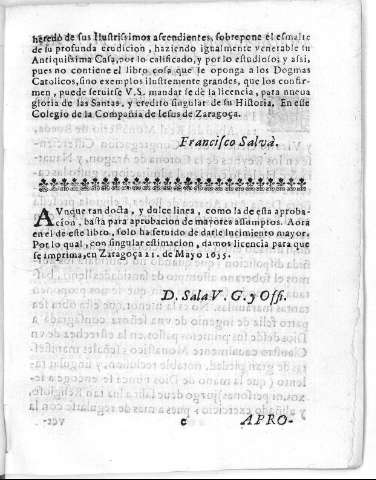 heredò de sus Ilustrissimos ascendientes, sobrepone el esmalte
de su profunda erudicion, haziendo igualmente venerable su
Antiquissima Casa, por lo calificado, y por lo estudioso; y assi,
pues no contiene el libro cosa que se oponga a los Dogmas
Catolicos, sino exemplos ilustremente grandes, que los confir-
men, puede seruirse V.S. mandar se dè la licencia, para nueua
gloria de las Santas, y credito singular de su Historia. En este
Colegio de la Compañia de Iesus de Zaragoça.
Francisco Salvà.
AVnque tan docta, y dulce linea, como la de esta aproba-
cion, basta para aprobacion de mayores assumptos. Aora
en el de este libro, solo ha seruido de darle lucimiento mayor.
Por lo qual, con singular estimacion, damos licencia para que
se imprima, en Zaragoça 21. de Mayo 1655.
D. Sala V. G. y Offi.
c APRO-